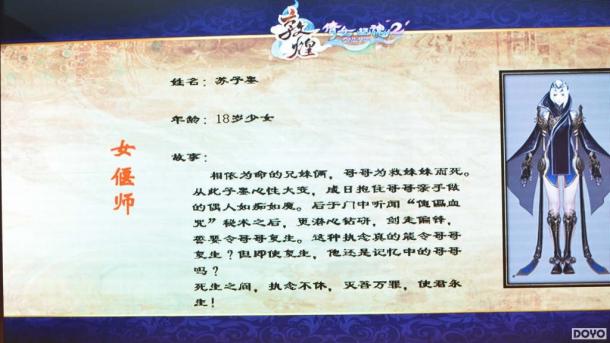 敦煌 倩女幽魂2
姓名：苏子銮
年龄：18岁少女
女偃师
故事：
相依为命的兄妹俩，哥哥为救妹妹而死。
从此子銮心性大变，成日抱住哥哥亲手做
的偶人如痴如魔。后于门中听闻“傀儡血
咒”秘术之后，更潜心钻研，剑走偏锋，
誓要令哥哥复生。这种执念真的能令哥哥
复生？但即使复生，他还是记忆中的哥哥
吗？
死生之间，执念不休，灭吾万罪，使君永
生！
DOYO